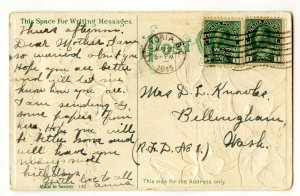 This Space For Writing Messages
Thurs afternoon.
Dear Mother, I am
so worried about you
Hope you are better
and will let me
know how you are.
I am sending
some papers from
here. Hope you will
be better soon and
will have you
many more
birthdays.
Lots love to all
Annie
Made in Saxony 142
VICTORIA
5 - PM
1915
POST
Mrs D. L. Knowles
Bellingham,
Wash.
(R.F.D. No 1.)
This side for the Address only.